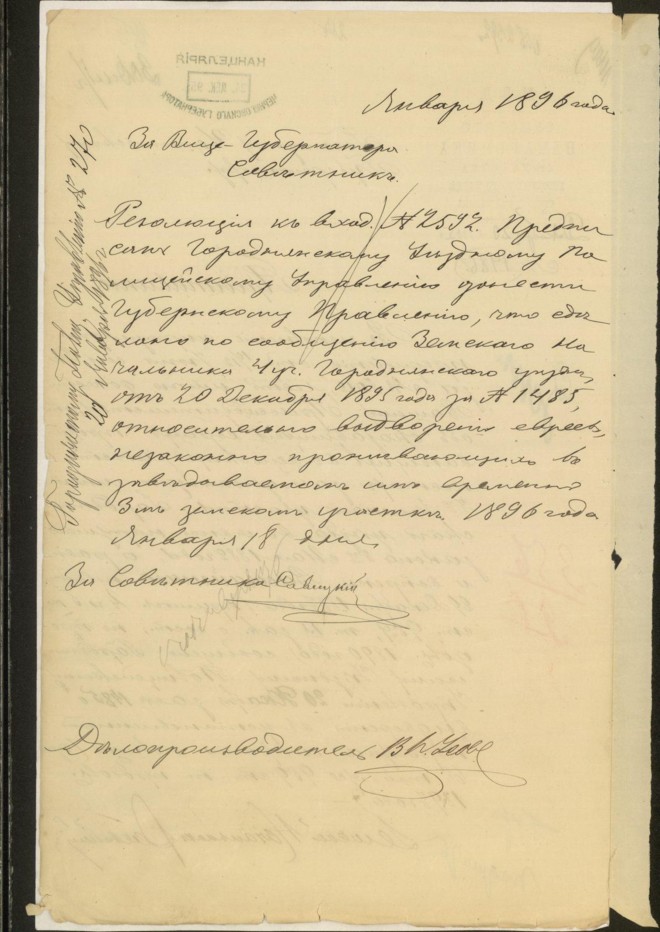 Января 1896 года.
За Вице-Губернатора
Совѣтникъ.
Резолюція къ вход. № 2592. Предпи
сать Городнянскому Уѣздному По
лицейскому Управленію донести
Губернскому Правленію, что сдѣ
лано по сообщенію Земскаго На
чальника 4 уч. Городнянскаго уѣзда,
отъ 20 Декабря 1895 года за № 1485,
относительно выдворенія евреевъ,
незаконно проживающихъ въ
завѣдываемомъ имъ временно
3мъ земскомъ участкѣ. 1896 года
Января 18 дня.
За Совѣтника Савицкій
Дѣлопроизводитель
Городнянскому Полиц. Управленію № 270
20 Января 1896 г.
КАНЦЕЛЯРІЯ